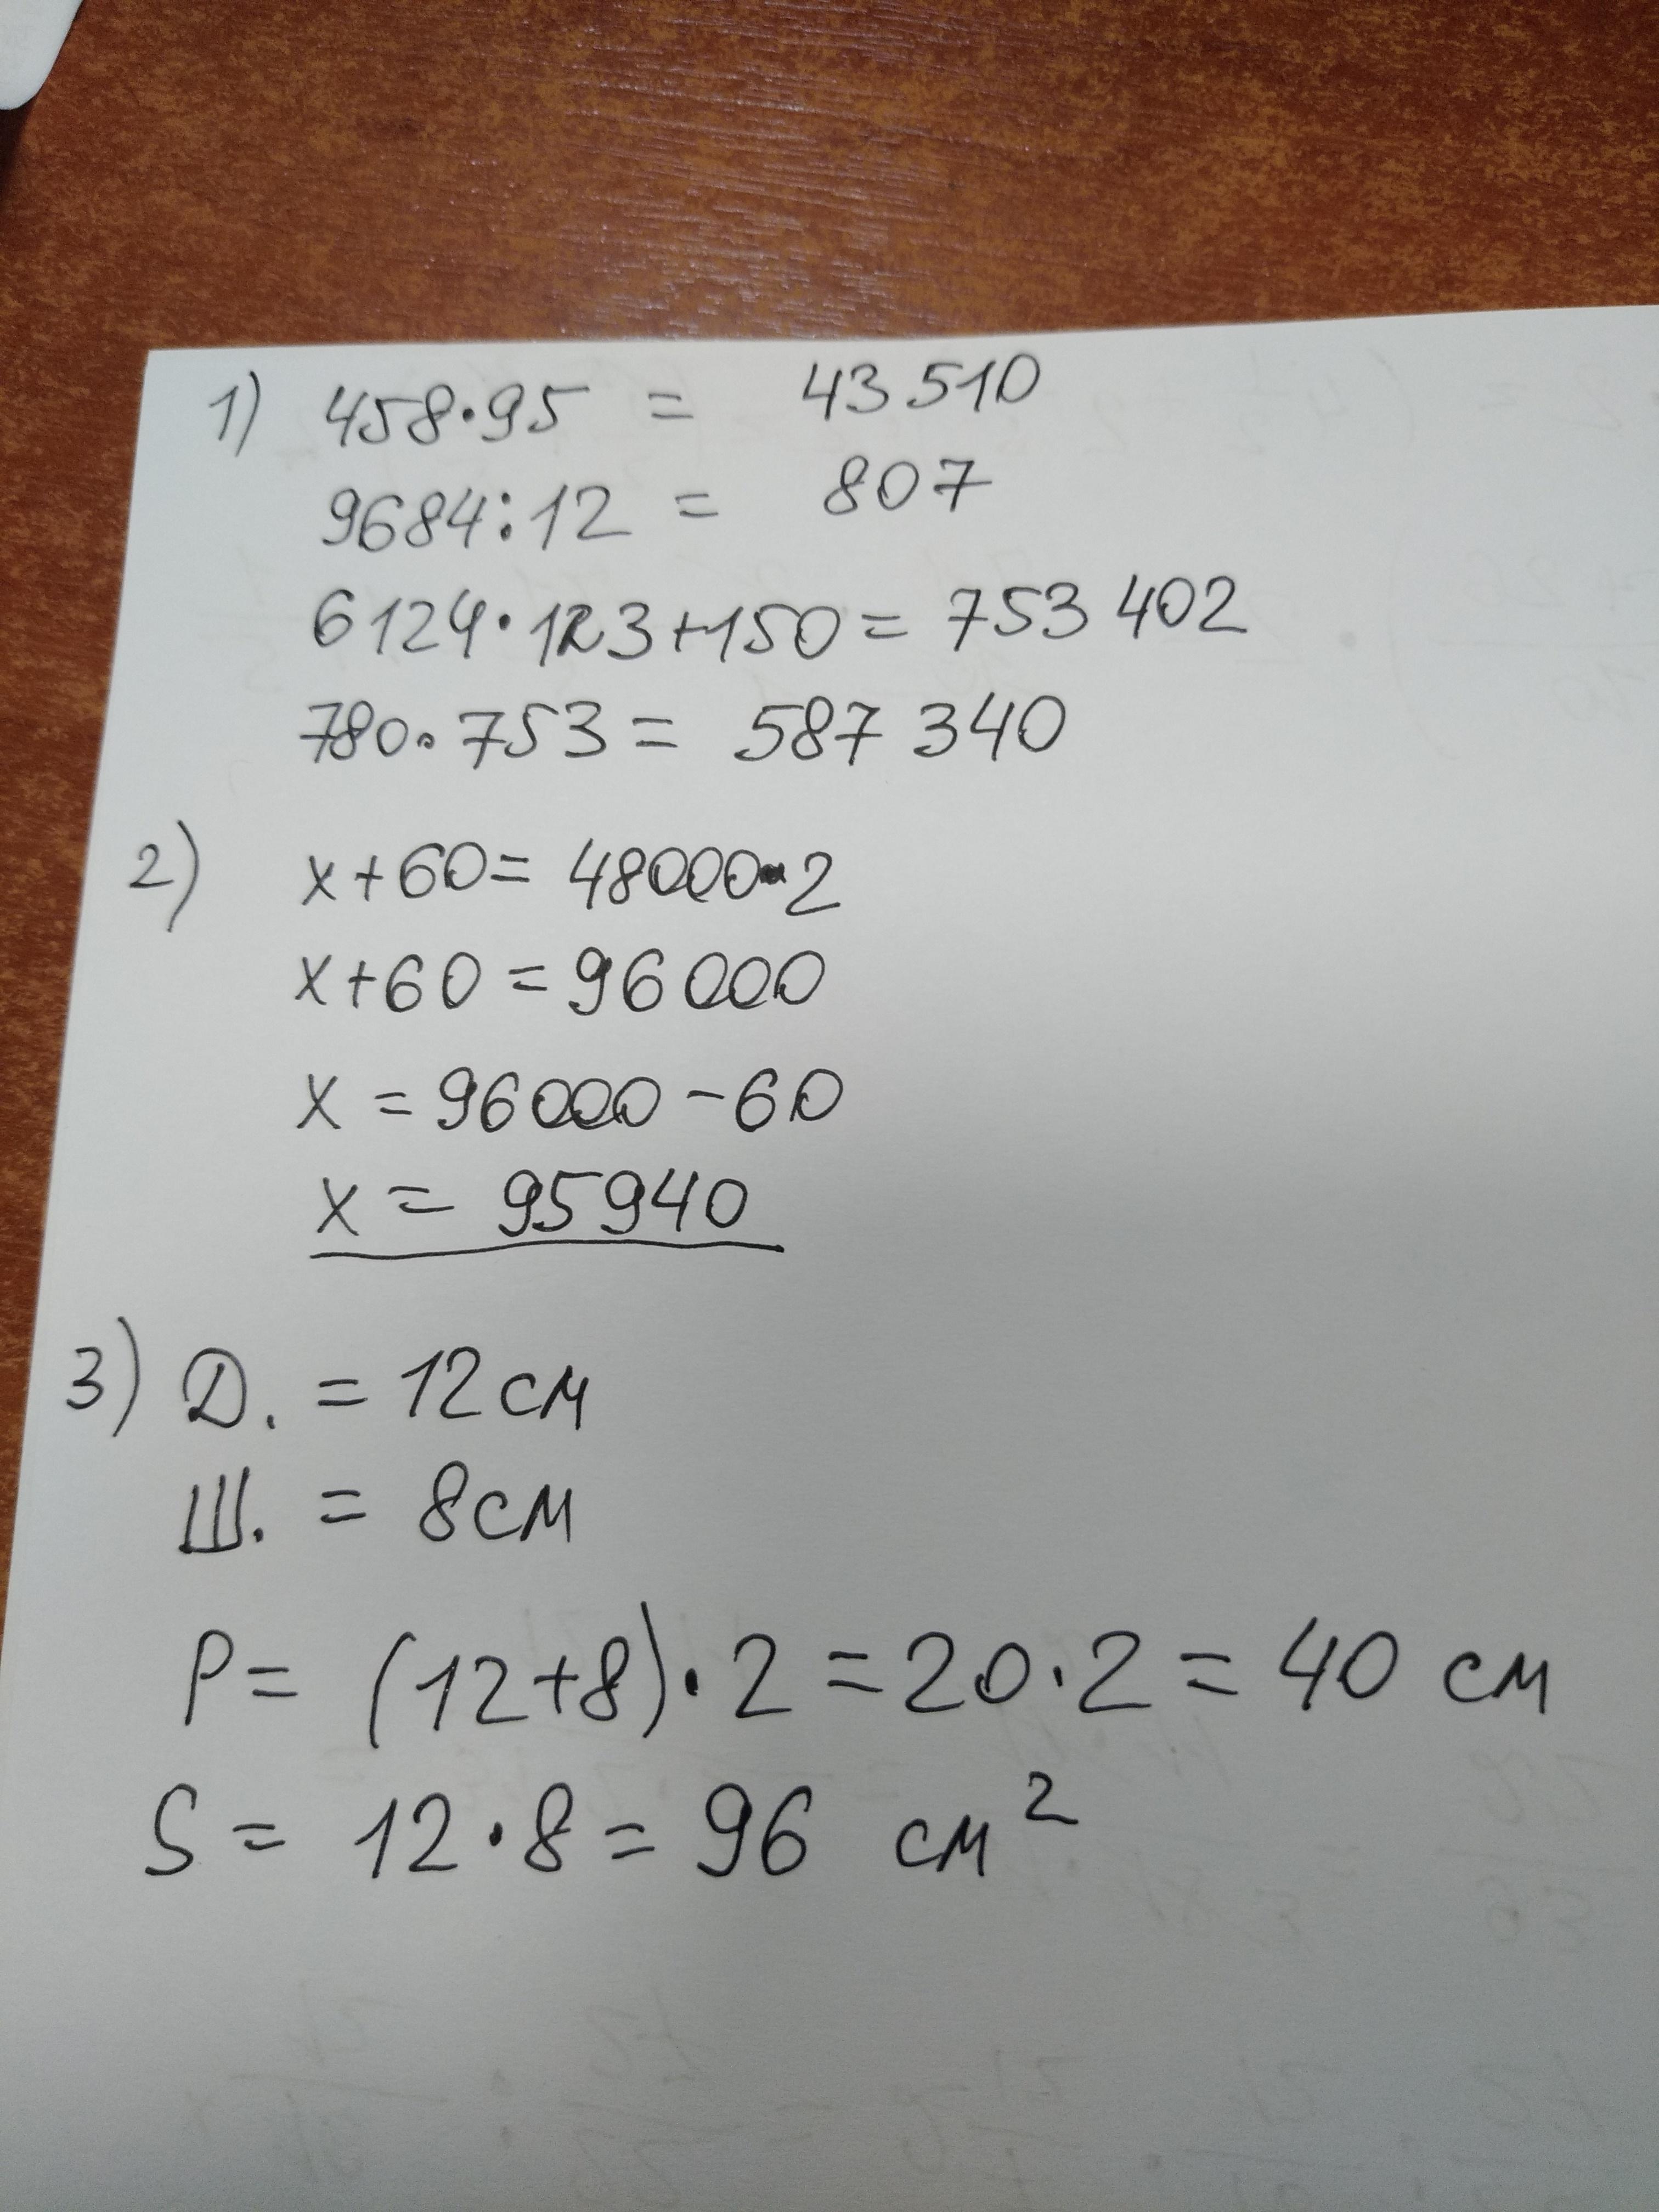 1) 458·95 = 43510
9684:12 = 807
6124·123+150= 753 402
780·753= 587 340
2) x+60= 48000·2
x+60 = 96000
x = 96000 - 60
x = 95940
3) Д. = 12см
Ш. = 8см
P= (12+8)·2=20·2= 40 см
S= 12·8= 96 см²